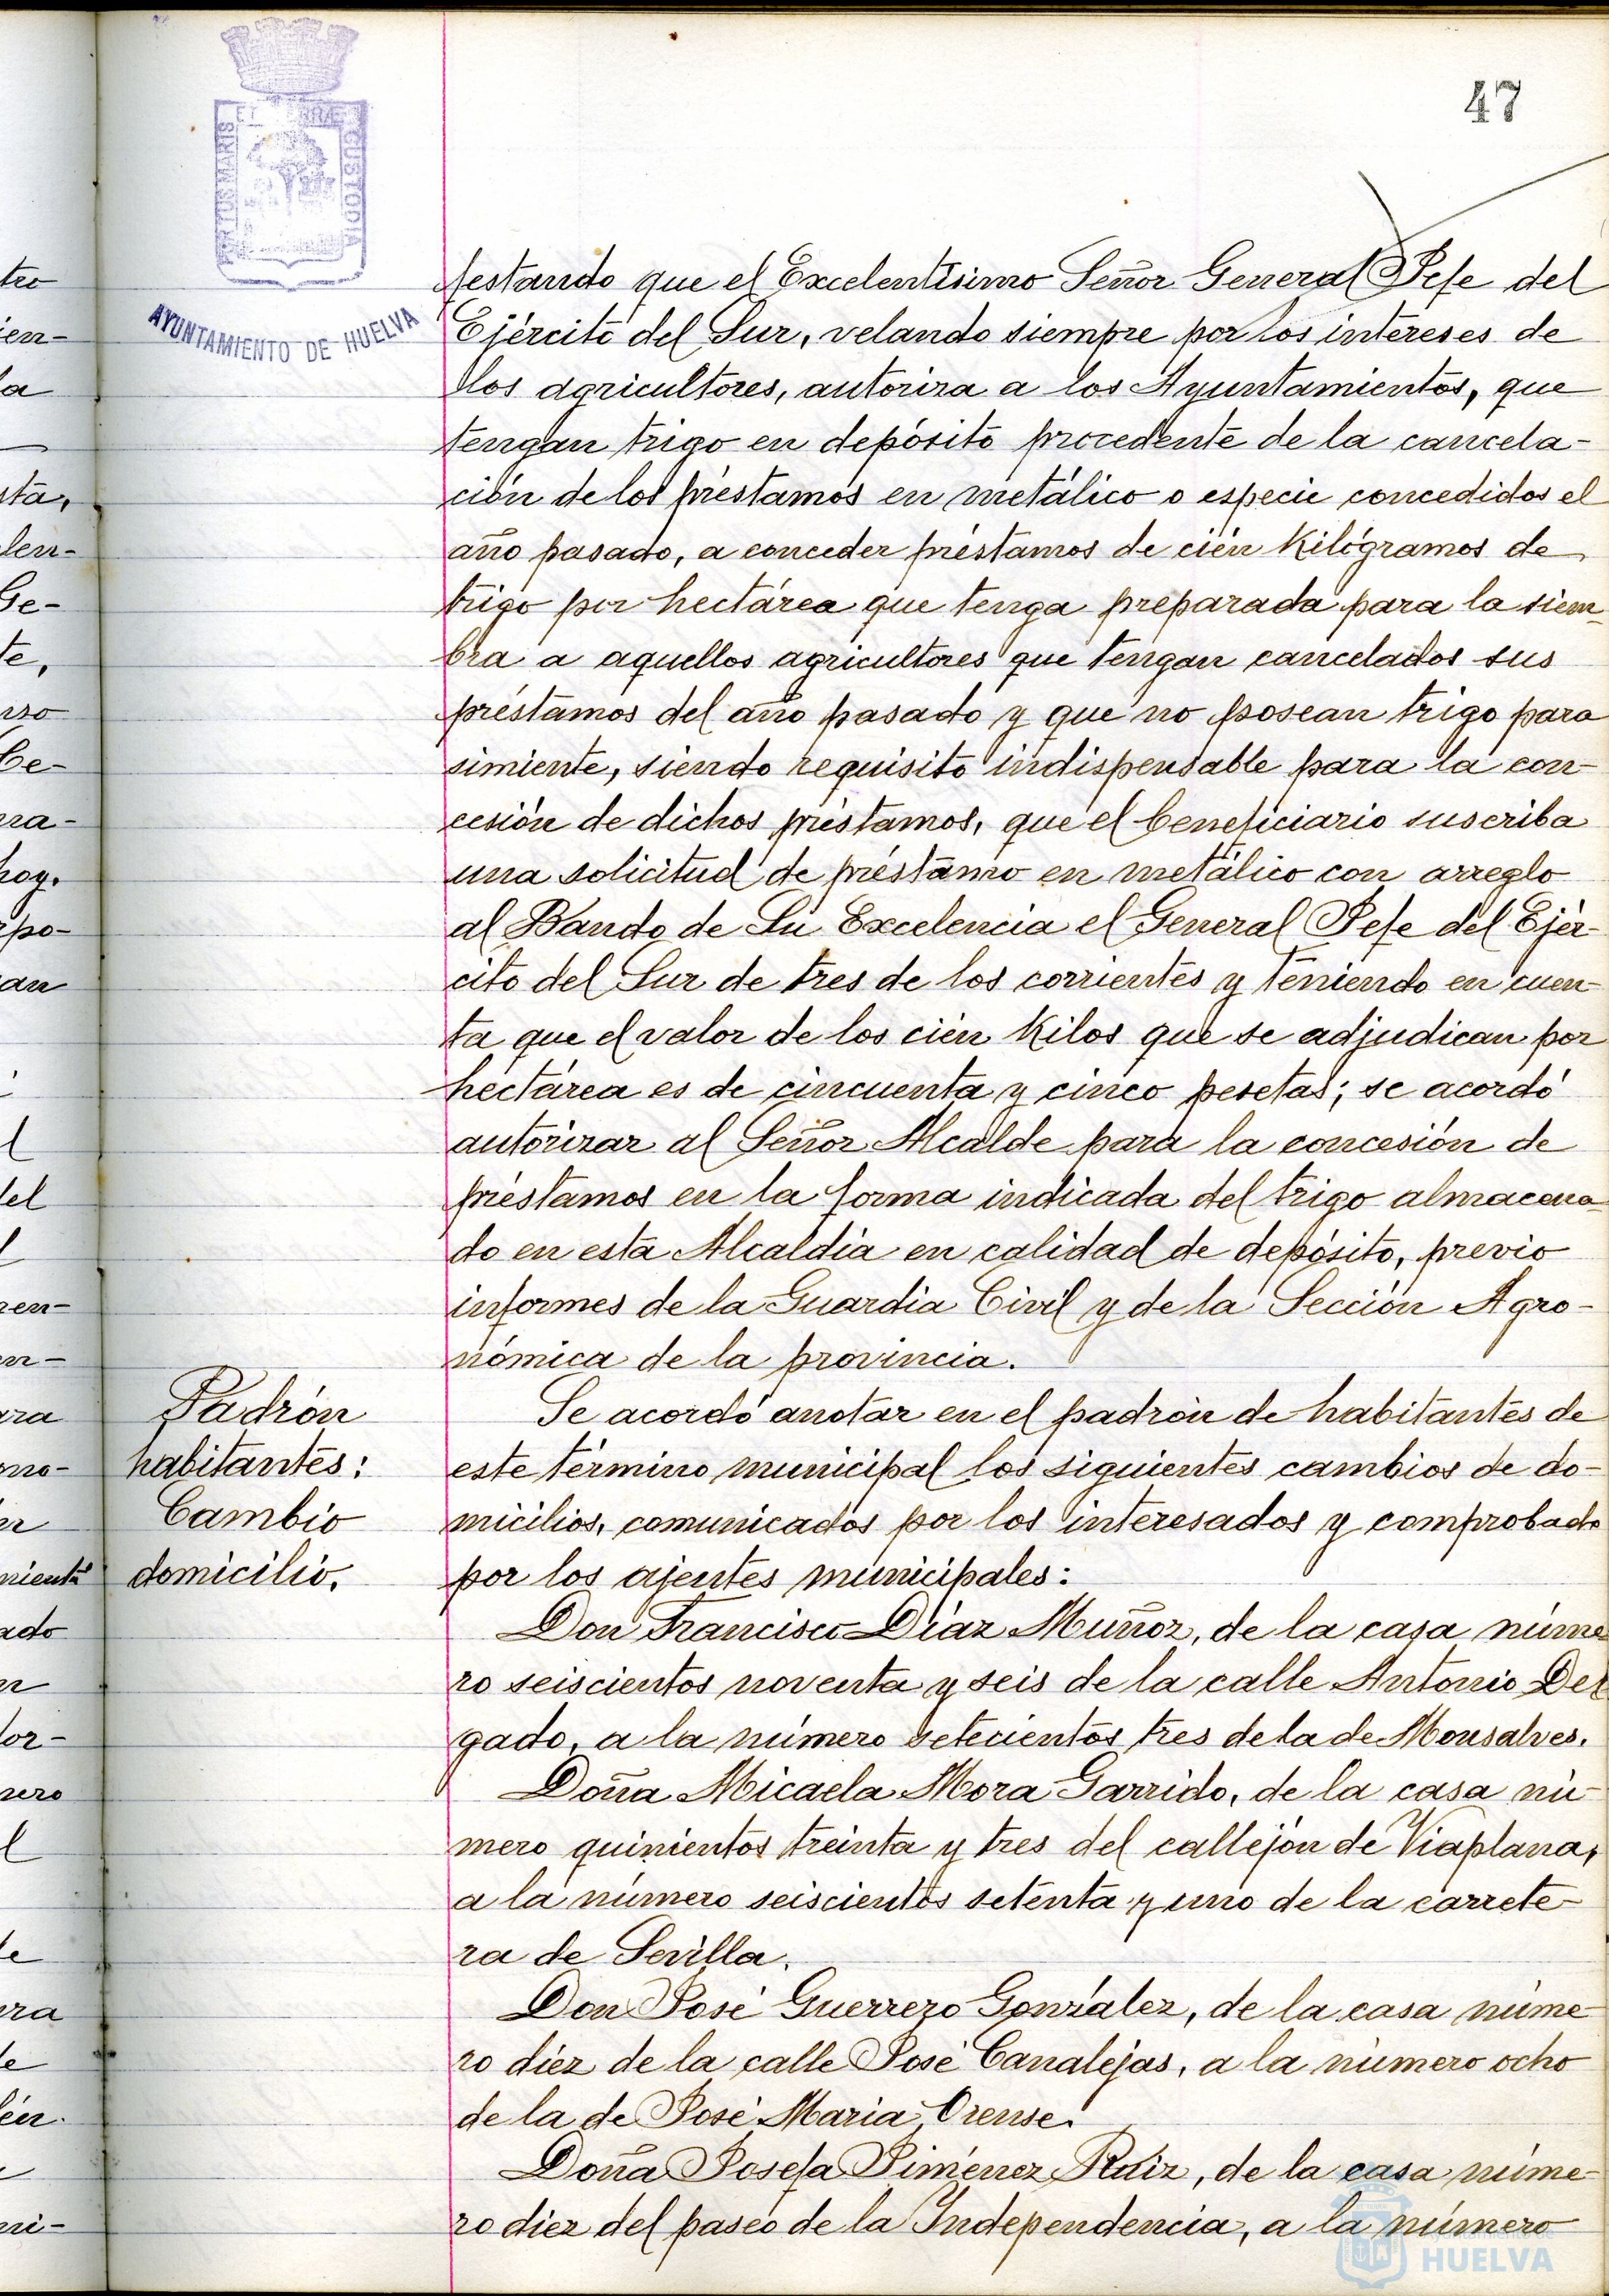 47
PORTUS MARIS ET TERRAE CUSTODIA
AYUNTAMIENTO DE HUELVA
festando que el Excelentísimo Señor General Jefe del
Ejército del Sur, velando siempre por los intereses de
los agricultores, autoriza a los Ayuntamientos, que
tengan trigo en depósito procedente de la cancela-
ción de los préstamos en metálico o especie concedidos el
año pasado, a conceder préstamos de cién Kilógramos de
trigo por hectárea que tenga preparada para la siem-
bra a aquellos agricultores que tengan cancelados sus
préstamos del año pasado y que no posean trigo para
simiente, siendo requisito indispensable para la con-
cesión de dichos préstamos, que el beneficiario suscriba
una solicitud de préstamo en metálico con arreglo
al Bando de Su Excelencia el General Jefe del Ejér-
cito del Sur de tres de los corrientes y teniendo en cuen-
ta que el valor de los cién Kilos que se adjudican por
hectárea es de cincuenta y cinco pesetas; se acordó
autorizar al Señor Alcalde para la concesión de
préstamos en la forma indicada del trigo almacena-
do en esta Alcaldía en calidad de depósito, previo
informes de la Guardia Civil y de la Sección Agro-
nómica de la provincia.
Padrón
habitantes:
Cambio
domicilio.
Se acordó anotar en el padrón de habitantes de
este término municipal los siguientes cambios de do-
micilios, comunicados por los interesados y comprobado
por los ajentes municipales:
Don Francisco Díaz Muñoz, de la casa núme
ro seiscientos noventa y seis de la calle Antonio Del
gado, a la número setecientos tres de la de Monsalves.
Doña Micaela Mora Garrido, de la casa nú-
mero quinientos treinta y tres del callejón de Viaplana,
a la número seiscientos setenta y uno de la carrete-
ra de Sevilla.
Don José Guerrero González, de la casa núme-
ro diez de la calle José Canalejas, a la número ocho
de la de José María Orense.
Doña Josefa Jiménez Ruiz, de la casa núme-
ro diez del paseo de la Independencia, a la número
HUELVA